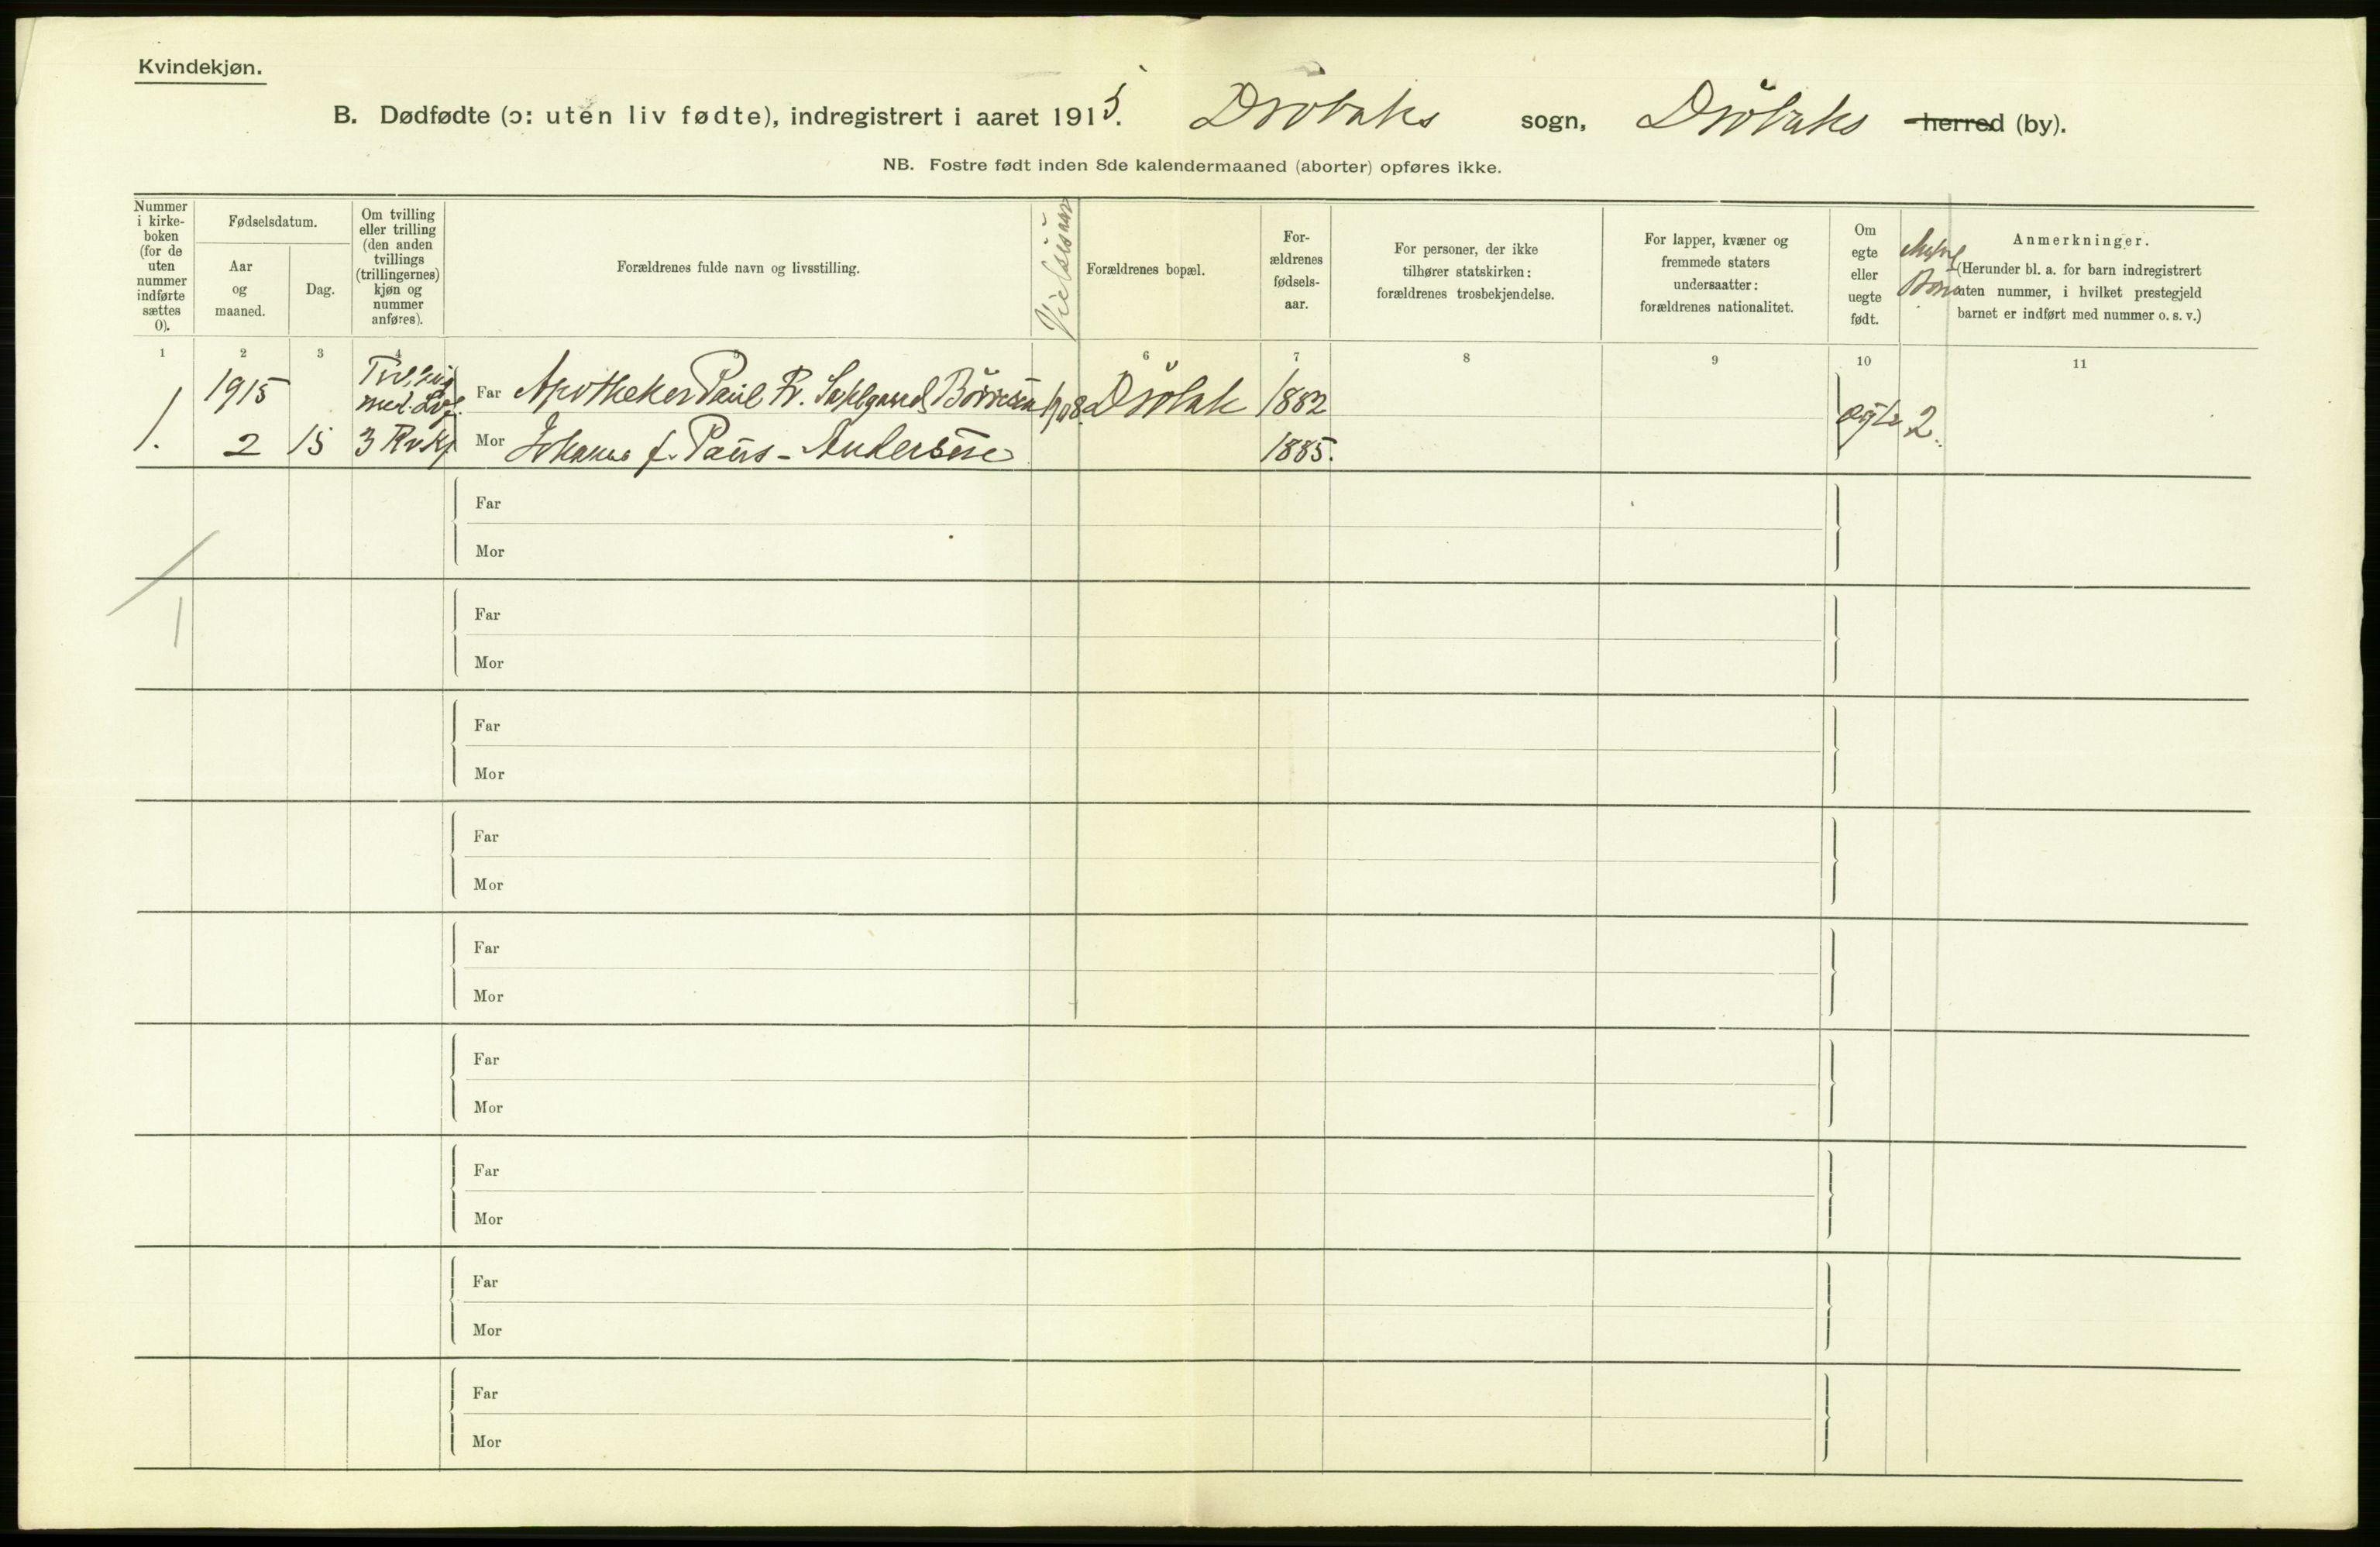 Kvindekjøn.
B. Dødfødte (ɔ: uten liv fødte), indregistrert i aaret 1915. Drøbaks sogn, Drøbaks herred (by).
NB. Fostre født inden 8de kalendermaaned (aborter) opføres ikke.
Nummer
i kirke-
boken
(for de
uten
nummer
indførte
sættes
0).
Fødselsdatum.
Aar
og
maaned.
Dag.
Om tvilling
eller trilling
(den anden
tvillings
(trillingernes)
kjøn og
nummer
anføres).
Forældrenes fulde navn og livsstilling.
Vielsesaar
Forældrenes bopæl.
For-
ældrenes
fødsels-
aar.
For personer, der ikke
tilhører statskirken:
forældrenes trosbekjendelse.
For lapper, kvæner og
fremmede staters
undersaatter:
forældrenes nationalitet.
Om
egte
eller
uegte
født.
Anmerkninger.
(Herunder bl. a. for barn indregistrert
uten nummer, i hvilket prestegjeld
barnet er indført med nummer o. s. v.)
1 2 3 4 5 6 7 8 9 10 11
1. 1915 Tvilling Far Apotheker Paul Børresen 1908. Drøbak 1882 ægte 2.
2 15 3 Mor Johanne f. Paus-Andersen 1885.
Far
Mor
1
Far
Mor
Far
Mor
Far
Mor
Far
Mor
Far
Mor
Far
Mor
Far
Mor
Far
Mor